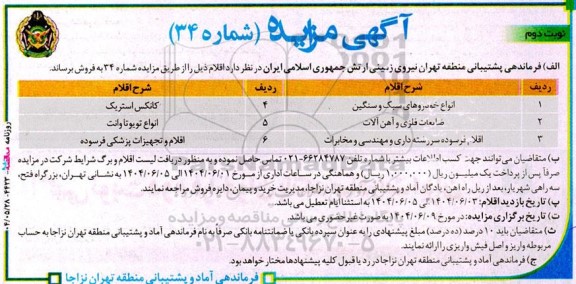 نوبت دوم
آگهی مزایده (شماره ۳۴)
الف) فرماندهی پشتیبانی منطقه تهران نیروی زمینی ارتش جمهوری اسلامی ایران در نظر دارد اقلام ذیل را از طریق مزایده شماره ۳۴ به فروش برساند.
ردیف شرح اقلام ردیف شرح اقلام
۱ انواع خودروهای سبک و سنگین ۴ کانکس استریک
۲ ضایعات فلزی و آهن آلات ۵ انواع تویوتا وانت
۳ اقلام فرسوده سررسته داری و مهندسی و مخابرات ۶ اقلام و تجهیزات پزشکی فرسوده
ب) متقاضیان می توانند جهت کسب اطلاعات بیشتر با شماره تلفن ۶۶۲۸۴۷۸۷-۰۲۱ تماس حاصل نموده و به منظور دریافت لیست اقلام و برگ شرایط شرکت در مزایده
صرفاً پس از پرداخت یک میلیون ریال (۱,۰۰۰,۰۰۰ ریال) و هماهنگی در ساعات اداری از مورخ ۱۴۰۴/۰۶/۰۱ الی ۱۴۰۴/۰۶/۰۵ به نشانی تهران، بزرگراه فتح،
سه راهی شهریار، بعد از پل راه آهن، پادگان آماد و پشتیبانی منطقه تهران نزاجا، مدیریت خرید و پیمان، دایره فروش مراجعه نمایند.
پ) تاریخ بازدید اقلام: ۱۴۰۴/۰۶/۰۳ الی ۱۴۰۴/۰۶/۰۵ به استثنا ایام تعطیل می باشد.
ت) تاریخ برگزاری مزایده: در مورخ ۱۴۰۴/۰۶/۰۹ به صورت غیرحضوری می باشد.
ث) متقاضیان باید ۱۰ درصد (ده درصد) مبلغ پیشنهادی را به عنوان سپرده بانکی یا ضمانتنامه بانکی صرفاً به نام فرماندهی آماد و پشتیبانی منطقه تهران نزاجا به حساب
مربوطه واریز و اصل فیش واریزی را ارائه نمایند.
ج) فرماندهی آماد و پشتیبانی منطقه تهران نزاجا در رد یا قبول کلیه پیشنهادها مختار خواهد بود.
فرماندهی آماد و پشتیبانی منطقه تهران نزاجا
فرماندهی آماد و پشتیبانی منطقه تهران نزاجا
۰۲۱-۸۸۳۴۹۶۷۰-۵